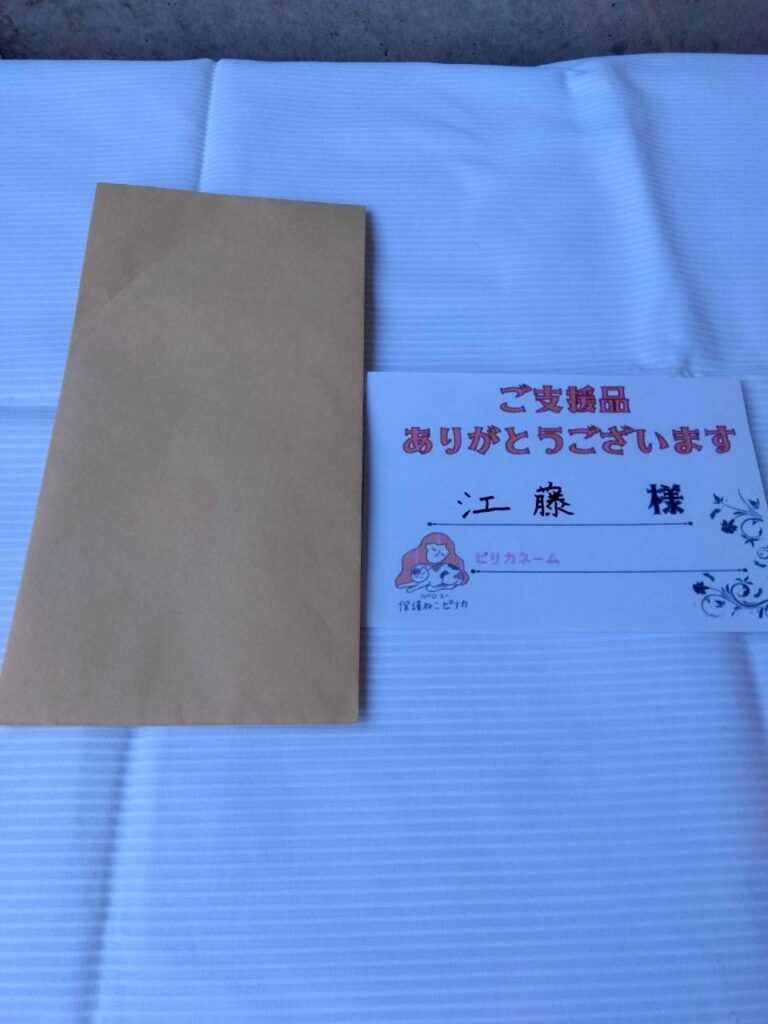 ご支援品
ありがとうございます
江藤 様
ピリカネーム
NPO法人
保護ねこピリカ